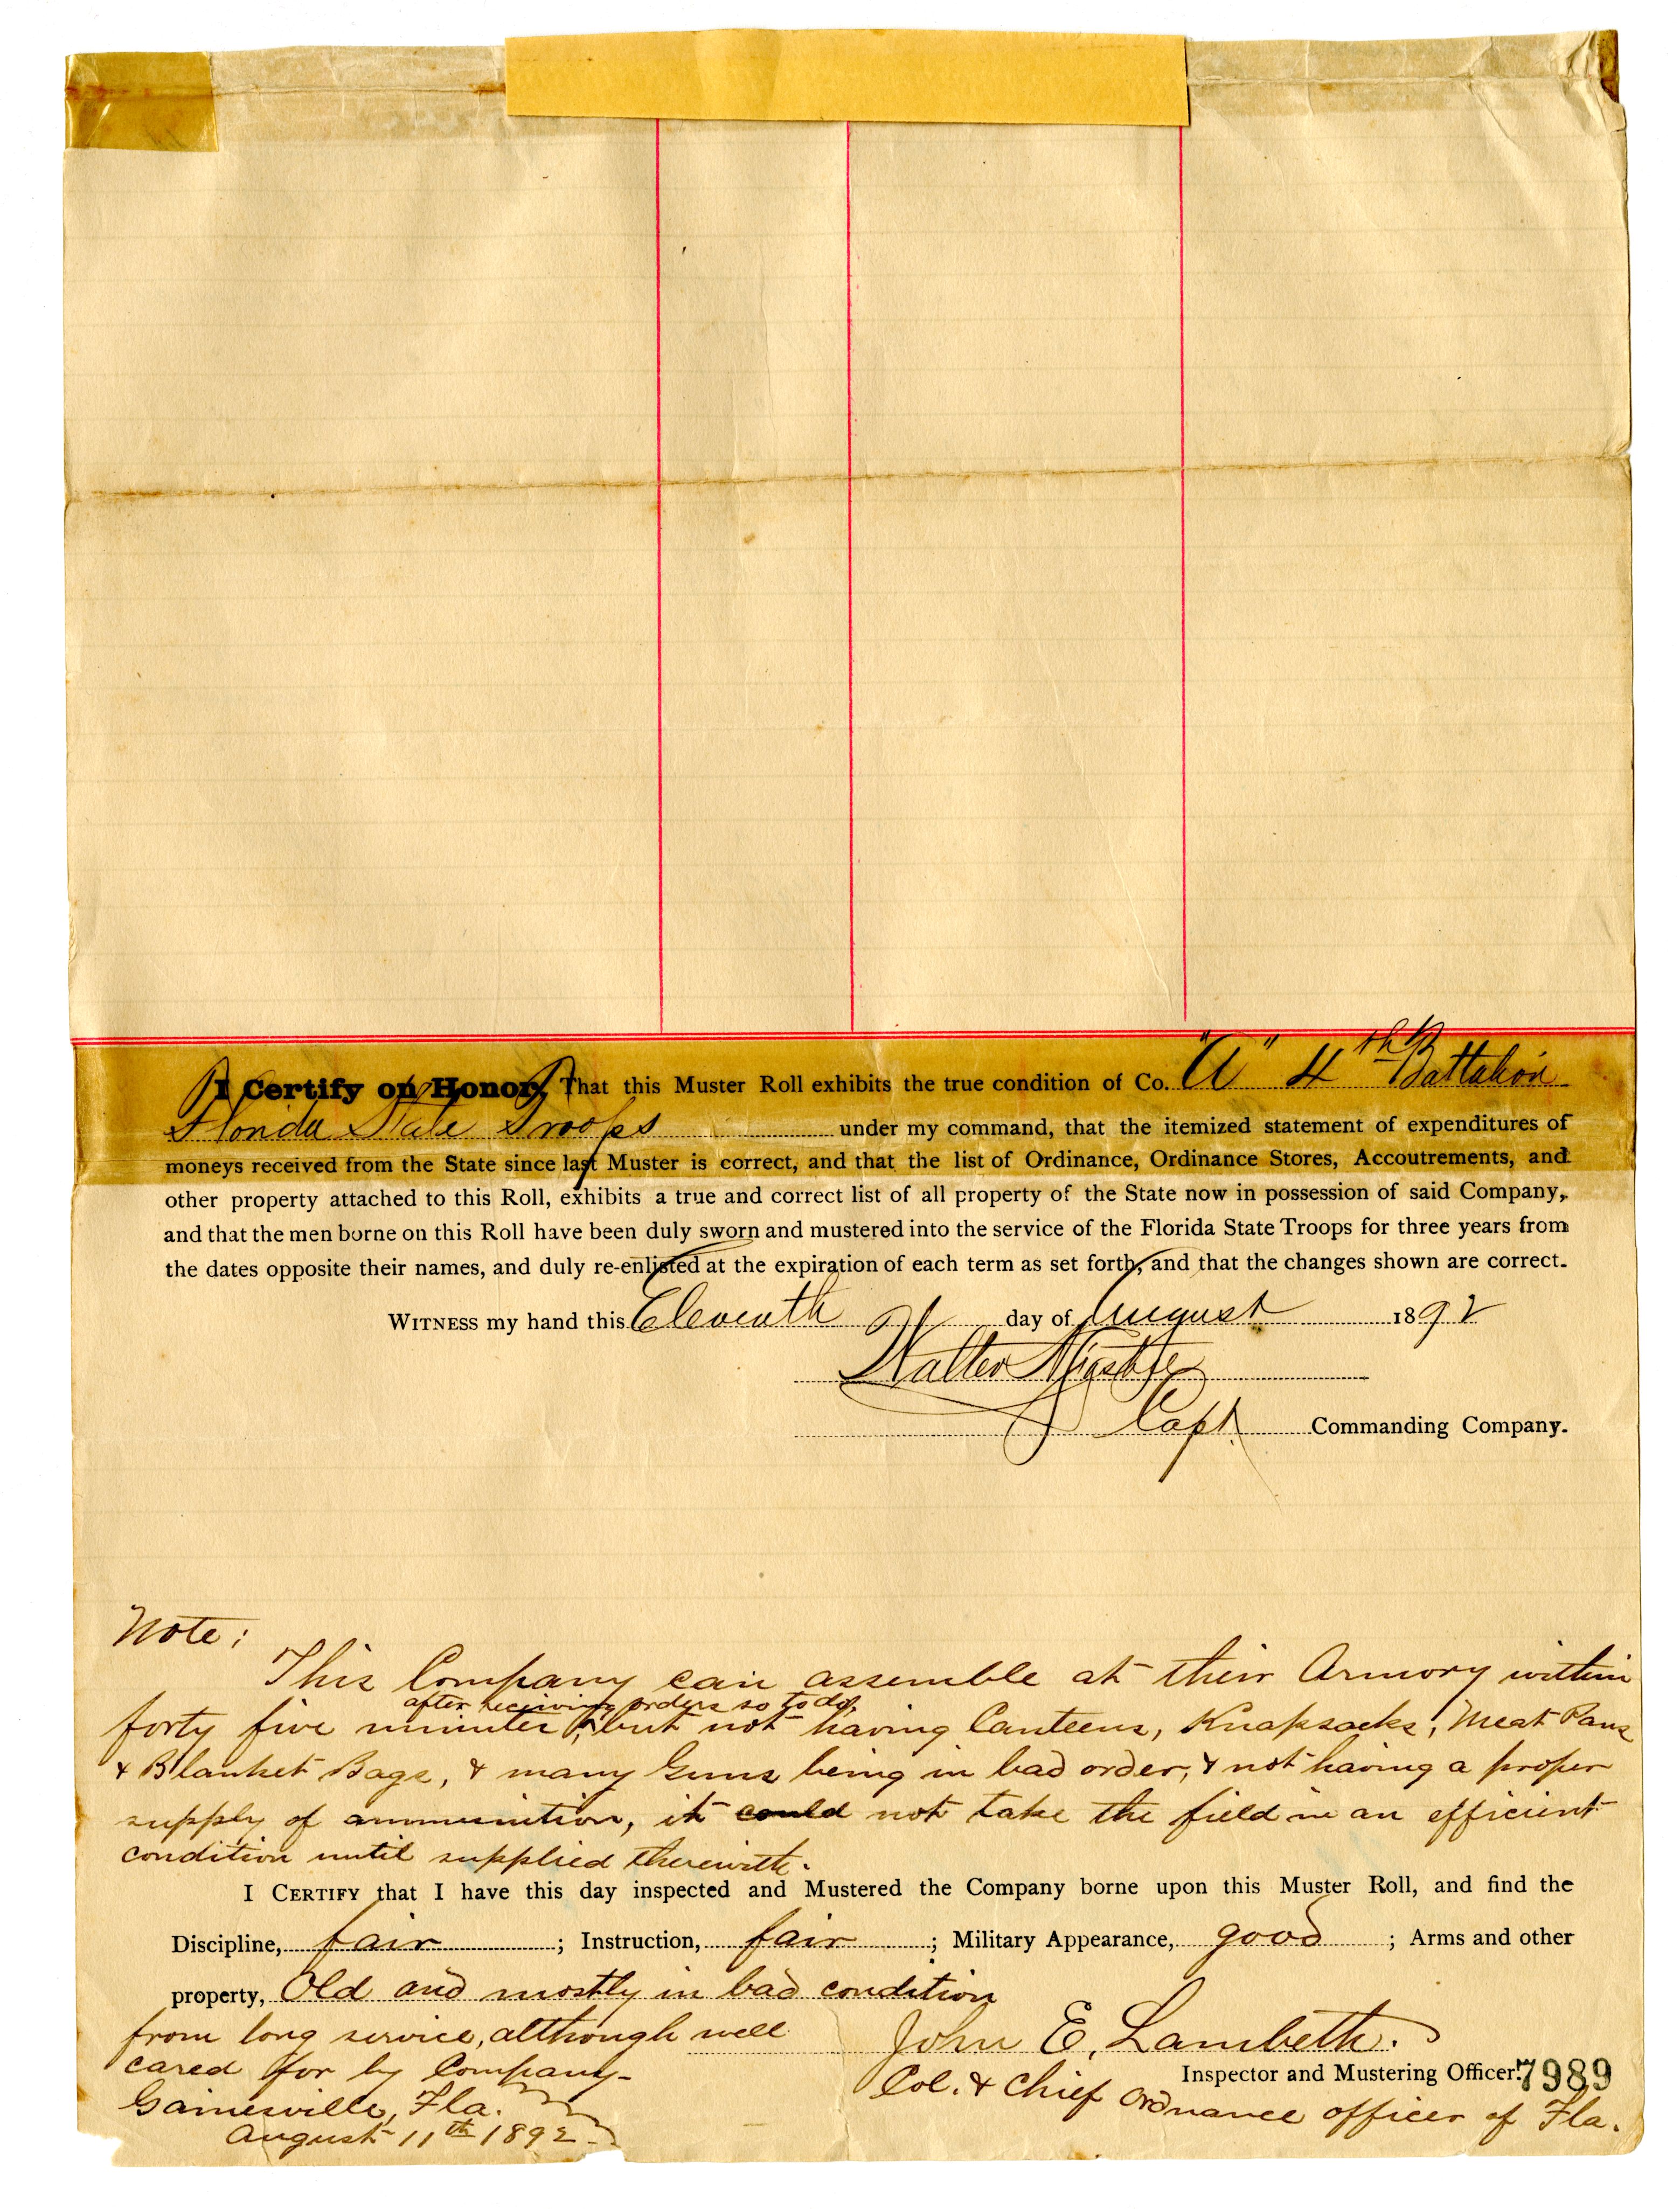 I Certify on Honor, That this Muster Roll exhibits the true condition of Co. "A" 4th Battalion
Florida State Troops under my command, that the itemized statement of expenditures of
moneys received from the State since last Muster is correct, and that the list of Ordinance, Ordinance Stores, Accoutrements, and
other property attached to this Roll, exhibits a true and correct list of all property of the State now in possession of said Company,
and that the men borne on this Roll have been duly sworn and mustered into the service of the Florida State Troops for three years from
the dates opposite their names, and duly re-enlisted at the expiration of each term as set forth, and that the changes shown are correct.
WITNESS my hand this Eleventh day of August 1892
Walter
Capt. Commanding Company.
Note:
This Company can assemble at their Armory within
after receiving orders so to do,
forty five minutes, but not having Canteens, Knapsacks, Meat Pans
& Blanket Bags, & many Guns being in bad order, & not having a proper
supply of ammunition, it could not take the field in an efficient
condition until supplied therewith.
I CERTIFY that I have this day inspected and Mustered the Company borne upon this Muster Roll, and find the
Discipline, fair ; Instruction, fair ; Military Appearance, good ; Arms and other
property, Old and mostly in bad condition
from long service, although well John E. Lambeth.
cared for by Company- Inspector and Mustering Officer. 7989
Gainesville, Fla. Col. & Chief Ordnance officer of Fla.
August 11th 1892